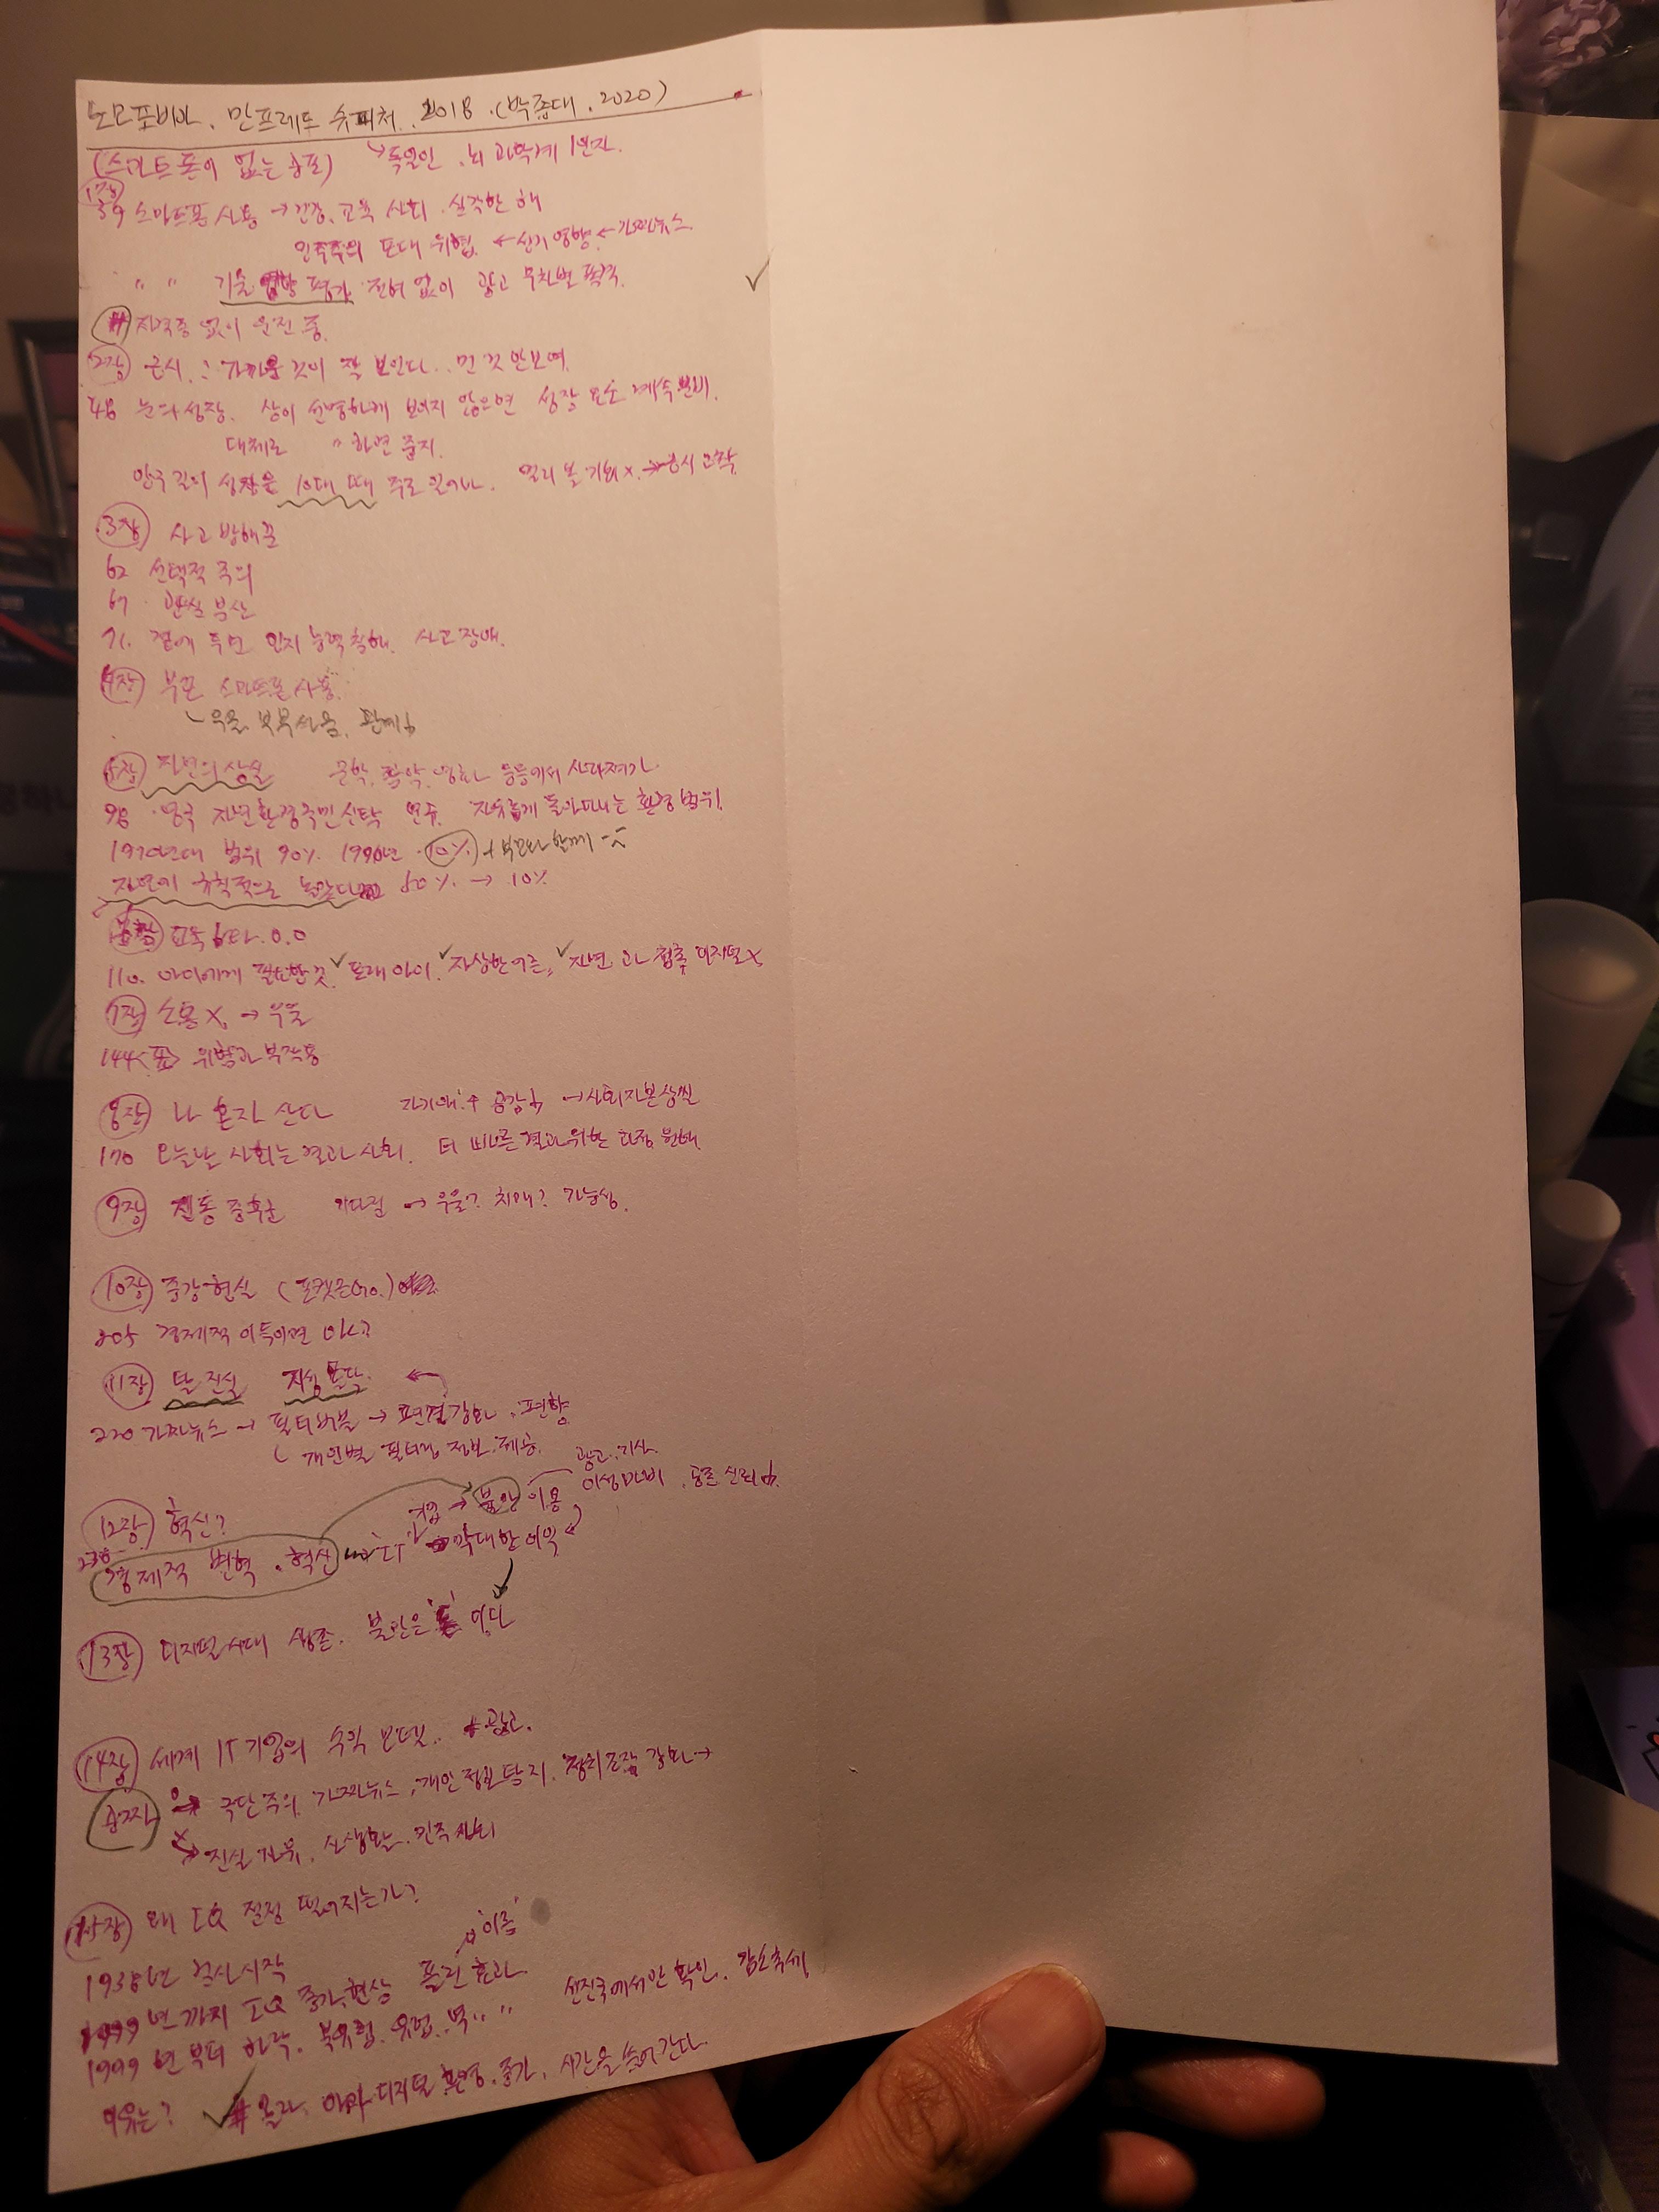 노모포비아. 만프레드 슈피처. 2018. (박종대. 2020)
(스마트폰이 없는 공포) ↘독일인. 뇌 과학계 1인자.
1장
39 스마트폰 사용 → 건강, 교육 사회 심각한 해
민주주의 토대 위협 ← 선거 영향 ← 가짜뉴스.
" " 기술 평가 전혀 없이 광고 무차별 폭격.
# 자격증 없이 운전 중.
2장 근시 : 가까운 것이 잘 보인다. 먼 것 안보여
48 눈의 성장. 상이 선명하게 보이지 않으면 성장 호르몬 계속 분비.
대체로 " 하면 중지.
안구 길이 성장은 10대 때 주로 일어나. 멀리 볼 기회 x. → 근시 고착
3장 사고 방해꾼
62 선택적 주의
67. 관심 분산
71. 곁에 두면 인지 능력 침해. 사고 장애.
4장 부모 스마트폰 사용.
우울. 관계↓
5장 자연의 상실 문학, 음악, 영화 등등에서 사라져가.
98. 영국 자연환경국민신탁 연구. 자유롭게 돌아다니는 환경 범위.
1970년대 범위 90%. 1990년. 10% + 부모와 함께
자연에서 규칙적으로 놀았다 60% → 10%
6장 교육 0.0
110. 아이에게 필요한 것 ✓또래 아이. ✓자상한 어른, ✓자연 과 접촉 디지털 x
7장 소통 x, → 우울
144<표> 위험과 부작용
8장 나 혼자 산다 자기애↑ 공감↓ → 사회자본상실
170 오늘날 사회는 결과 사회. 더 빠른 결과 위한 과정
9장 진동 증후군 기다림 → 우울? 치매? 가능성.
10장 증강현실 (포켓몬Go.)
205 경제적 이득이면 OK?
11장 탈 진실 지성 몰락. ←
220 가짜뉴스 → 필터버블 → 편견강화. 편향
개인별 필터링 정보 제공.
광고. 기사.
12장 혁신? 기업 → 불안 이용 이성마비. 신뢰↓.
238
경제적 변혁. 혁신 IT 막대한 이익
13장 디지털시대 생존. 불안은 '돈' 이다
14장 세계 IT기업의 수익 모델. 광고.
공짜 o→ 극단주의, 가짜뉴스, 개인정보 탈취. 정치조작 강화→
x→ 진실 자유. 사생활. 민주사회
15장 왜 IQ 점점 떨어지는가?
1938년 검사시작
1999년 까지 IQ 증가현상 플린 효과 '이름'
1999년 부터 하락. 북유럽. 유럽. 선진국에서만 확인. 감소추세
이유는? ✓ # 몰라. 아마 디지털 환경. 증가. 시간을 쓸어간다.